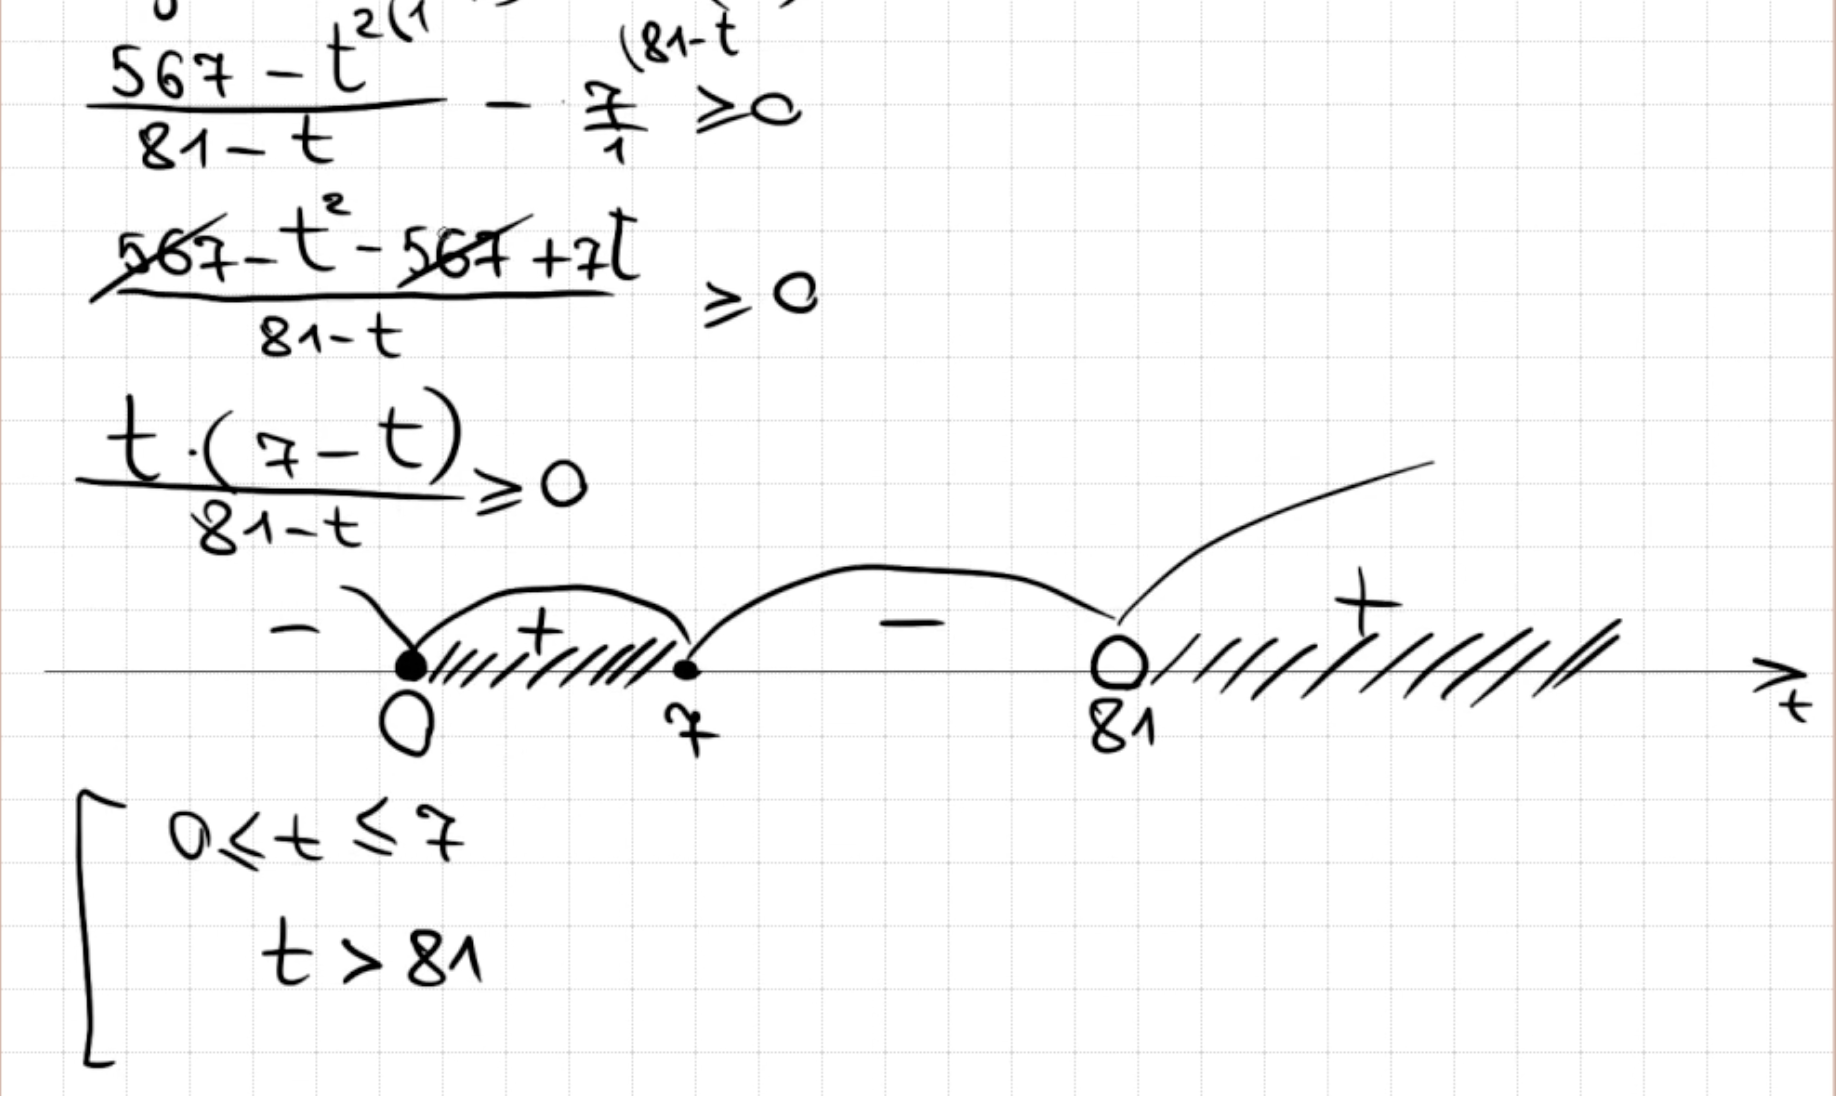 (81-t
567 - t²⁽¹
81 - t
- 7/1 ≥ 0
567 - t² - 567 + 7t
81 - t
≥ 0
t · (7 - t)
81 - t
≥ 0
- + - +
0 7 81 t
0 ≤ t ≤ 7
t > 81